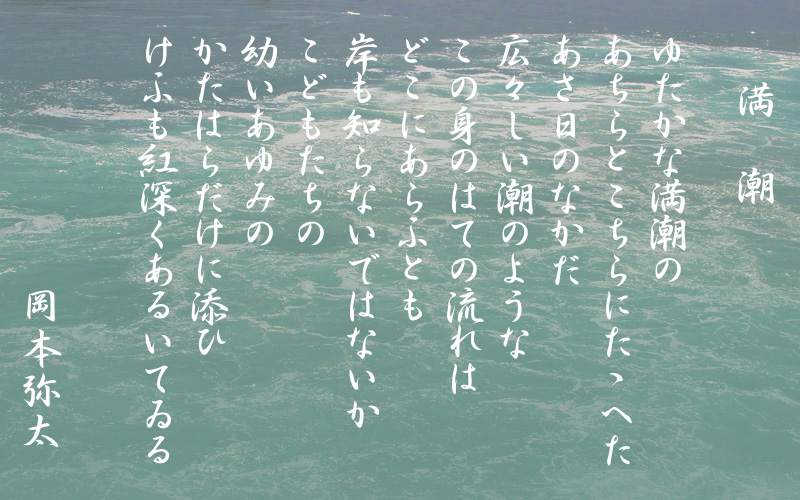 満潮
ゆたかな満潮の
あちらとこちらにたゝへた
あさ日のなかだ
広々しい潮のような
この身のはての流れは
どこにあらふとも
岸も知らないではないか
こどもたちの
幼いあゆみの
かたはらだけに添ひ
けふも紅深くあるいてゐる
岡本弥太